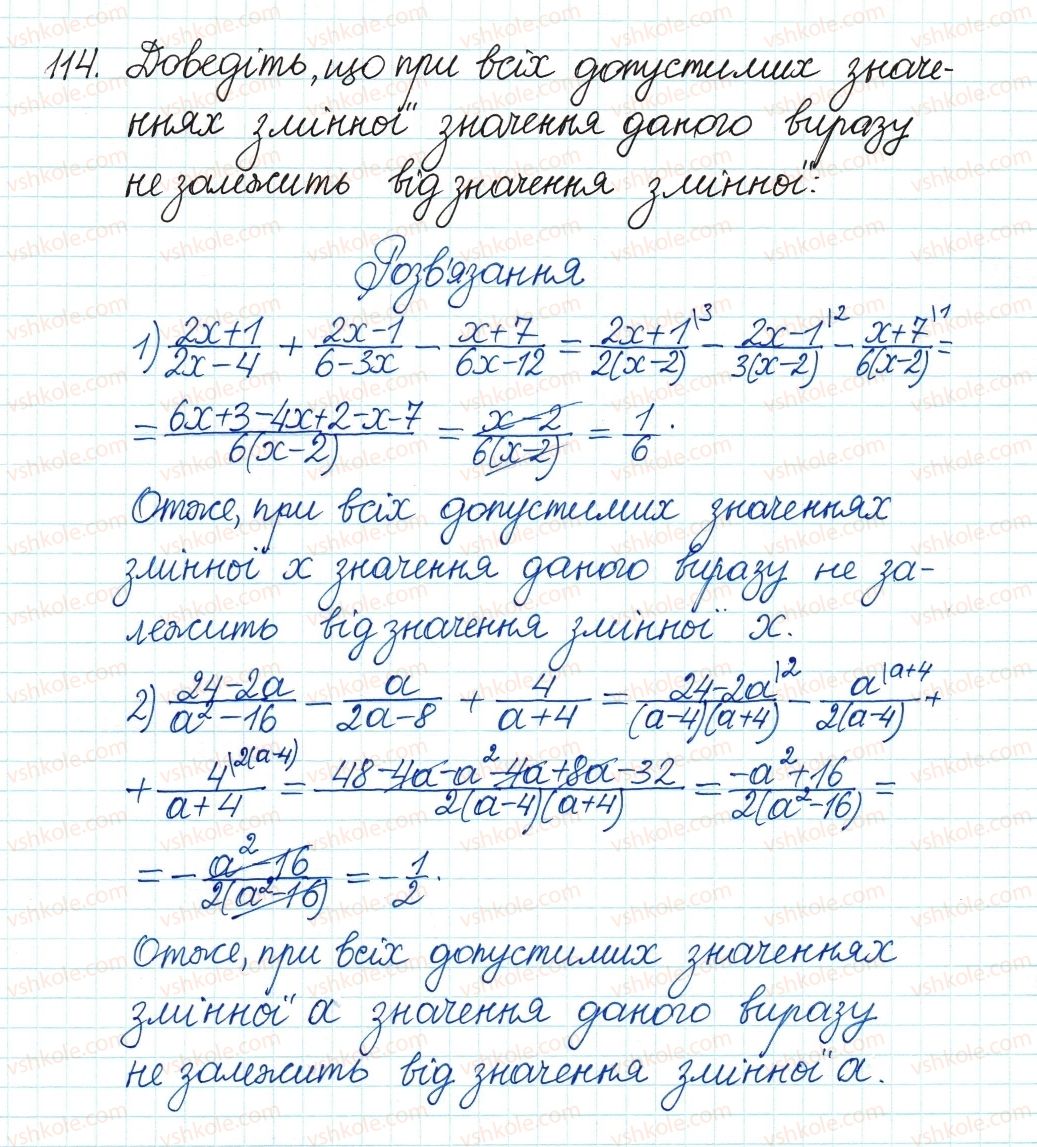 114. Доведіть, що при всіх допустимих значе-
ннях змінної значення даного виразу
не залежить від значення змінної:
Розв'язання
1) (2x+1)/(2x-4) + (2x-1)/(6-3x) - (x+7)/(6x-12) = (2x+1)/(2(x-2)) |3 - (2x-1)/(3(x-2)) |2 - (x+7)/(6(x-2)) |1 =
= (6x+3-4x+2-x-7)/(6(x-2)) = (x-2)/(6(x-2)) = 1/6.
Отже, при всіх допустимих значеннях
змінної x значення даного виразу не за-
лежить від значення змінної x.
2) (24-2a)/(a²-16) - a/(2a-8) + 4/(a+4) = (24-2a)/((a-4)(a+4)) |2 - a/(2(a-4)) |a+4 +
+ 4/(a+4) |2(a-4) = (48-4a-a²-4a+8a-32)/(2(a-4)(a+4)) = (-a²+16)/(2(a²-16)) =
= - (a²-16)/(2(a²-16)) = - 1/2.
Отже, при всіх допустимих значеннях
змінної a значення даного виразу
не залежить від значення змінної a.
vshkole.com